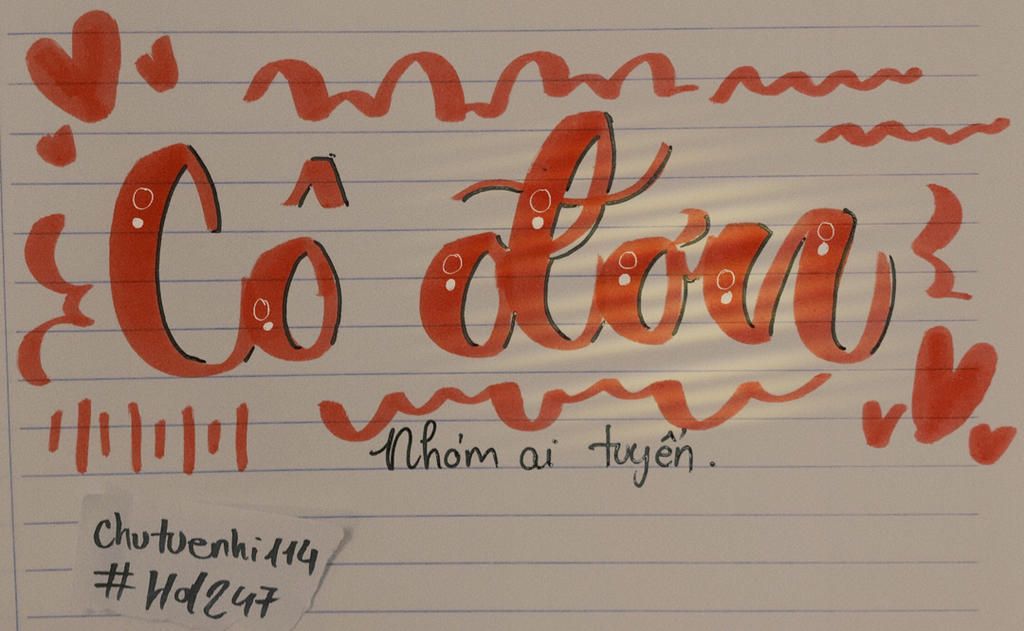 Cô đơn
Nhóm ai tuyến.
chutuenhi114
#Hd247